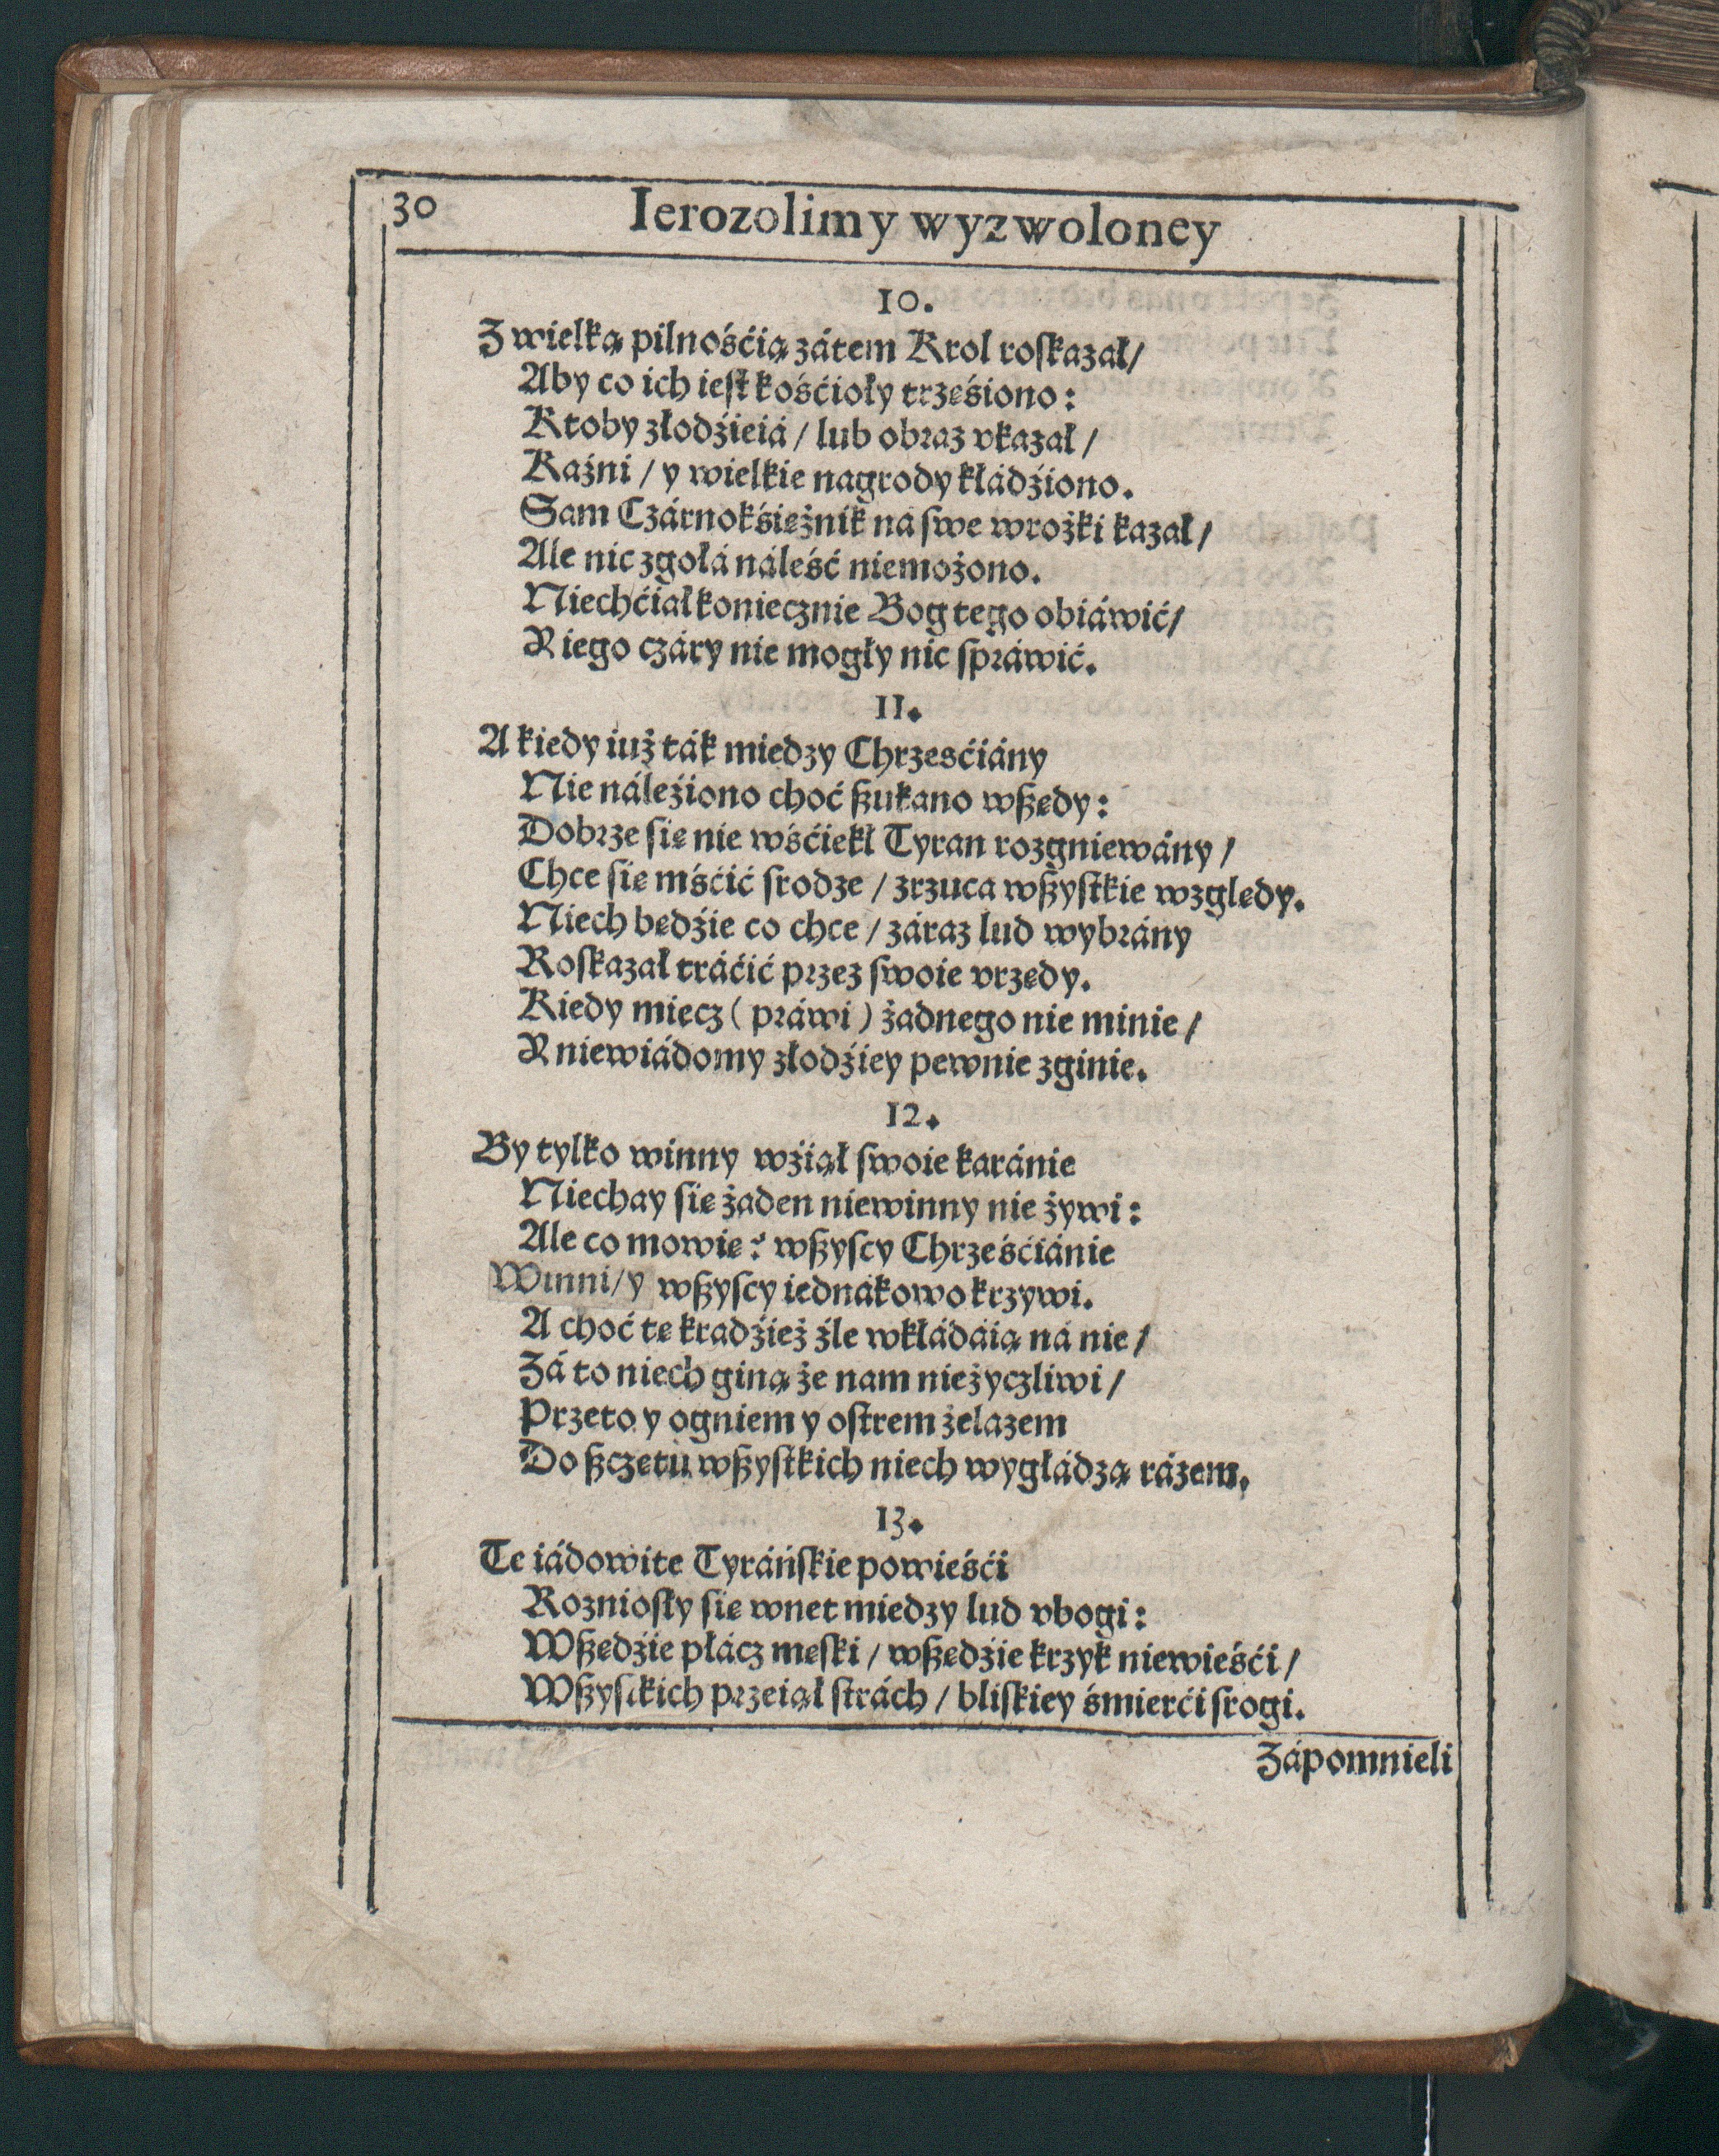 30 Ierozolimy wyzwoloney
10.
Z wielką pilnośćią zátem Krol roſkazał/
Aby co ich ieſt kośćioły trzęśiono:
Ktoby złodźieiá / lub obraz vkazał /
Kaźni / y wielkie nagrody kłádźiono.
Sam Czárnokśiężnik ná ſwe wrożki kazał /
Ale nic zgołá náleść niemożono.
Niechćiał koniecznie Bog tego obiáwić/
Y iego czáry nie mogły nic ſpráwić.
11.
A kiedy iuż ták miedzy Chrzesćiány
Nie náleźiono choć ſzukano wſzędy:
Dobrze ſię nie wśćiekł Tyran rozgniewány /
Chce ſię mśćić ſrodze / zrzuca wſzyſtkie względy.
Niech będźie co chce / záraz lud wybrány
Roſkazał tráćić przez ſwoie vrzędy.
Kiedy miecz ( práwi ) żadnego nie minie /
Y niewiádomy złodźiey pewnie zginie.
12.
By tylko winny wźiął ſwoie karánie
Niechay ſię żaden niewinny nie żywi:
Ale co mowię? wſzyſcy Chrześćiánie
Winni/y wſzyſcy iednákowo krzywi.
A choć tę kradźież źle wkłádáią ná nie /
Zá to niech giną że nam nieżyczliwi /
Przeto y ogniem y oſtrem żelazem
Do ſzczętu wſzyſtkich niech wygłádzą rázem.
13.
Te iádowite Tyráńſkie powieśći
Rozniosły ſię wnet miedzy lud vbogi:
Wſzędźie płácz męſki / wſzędźie krzyk niewieśći /
Wſzyſtkich przeiął ſtrách / bliſkiey śmierći ſrogi.
Zápomnieli